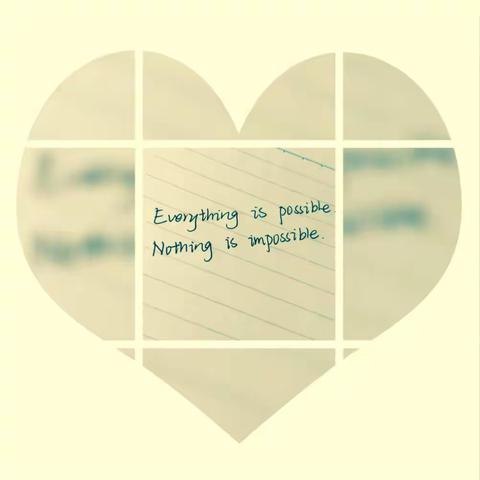 Everything is possible
Nothing is impossible.